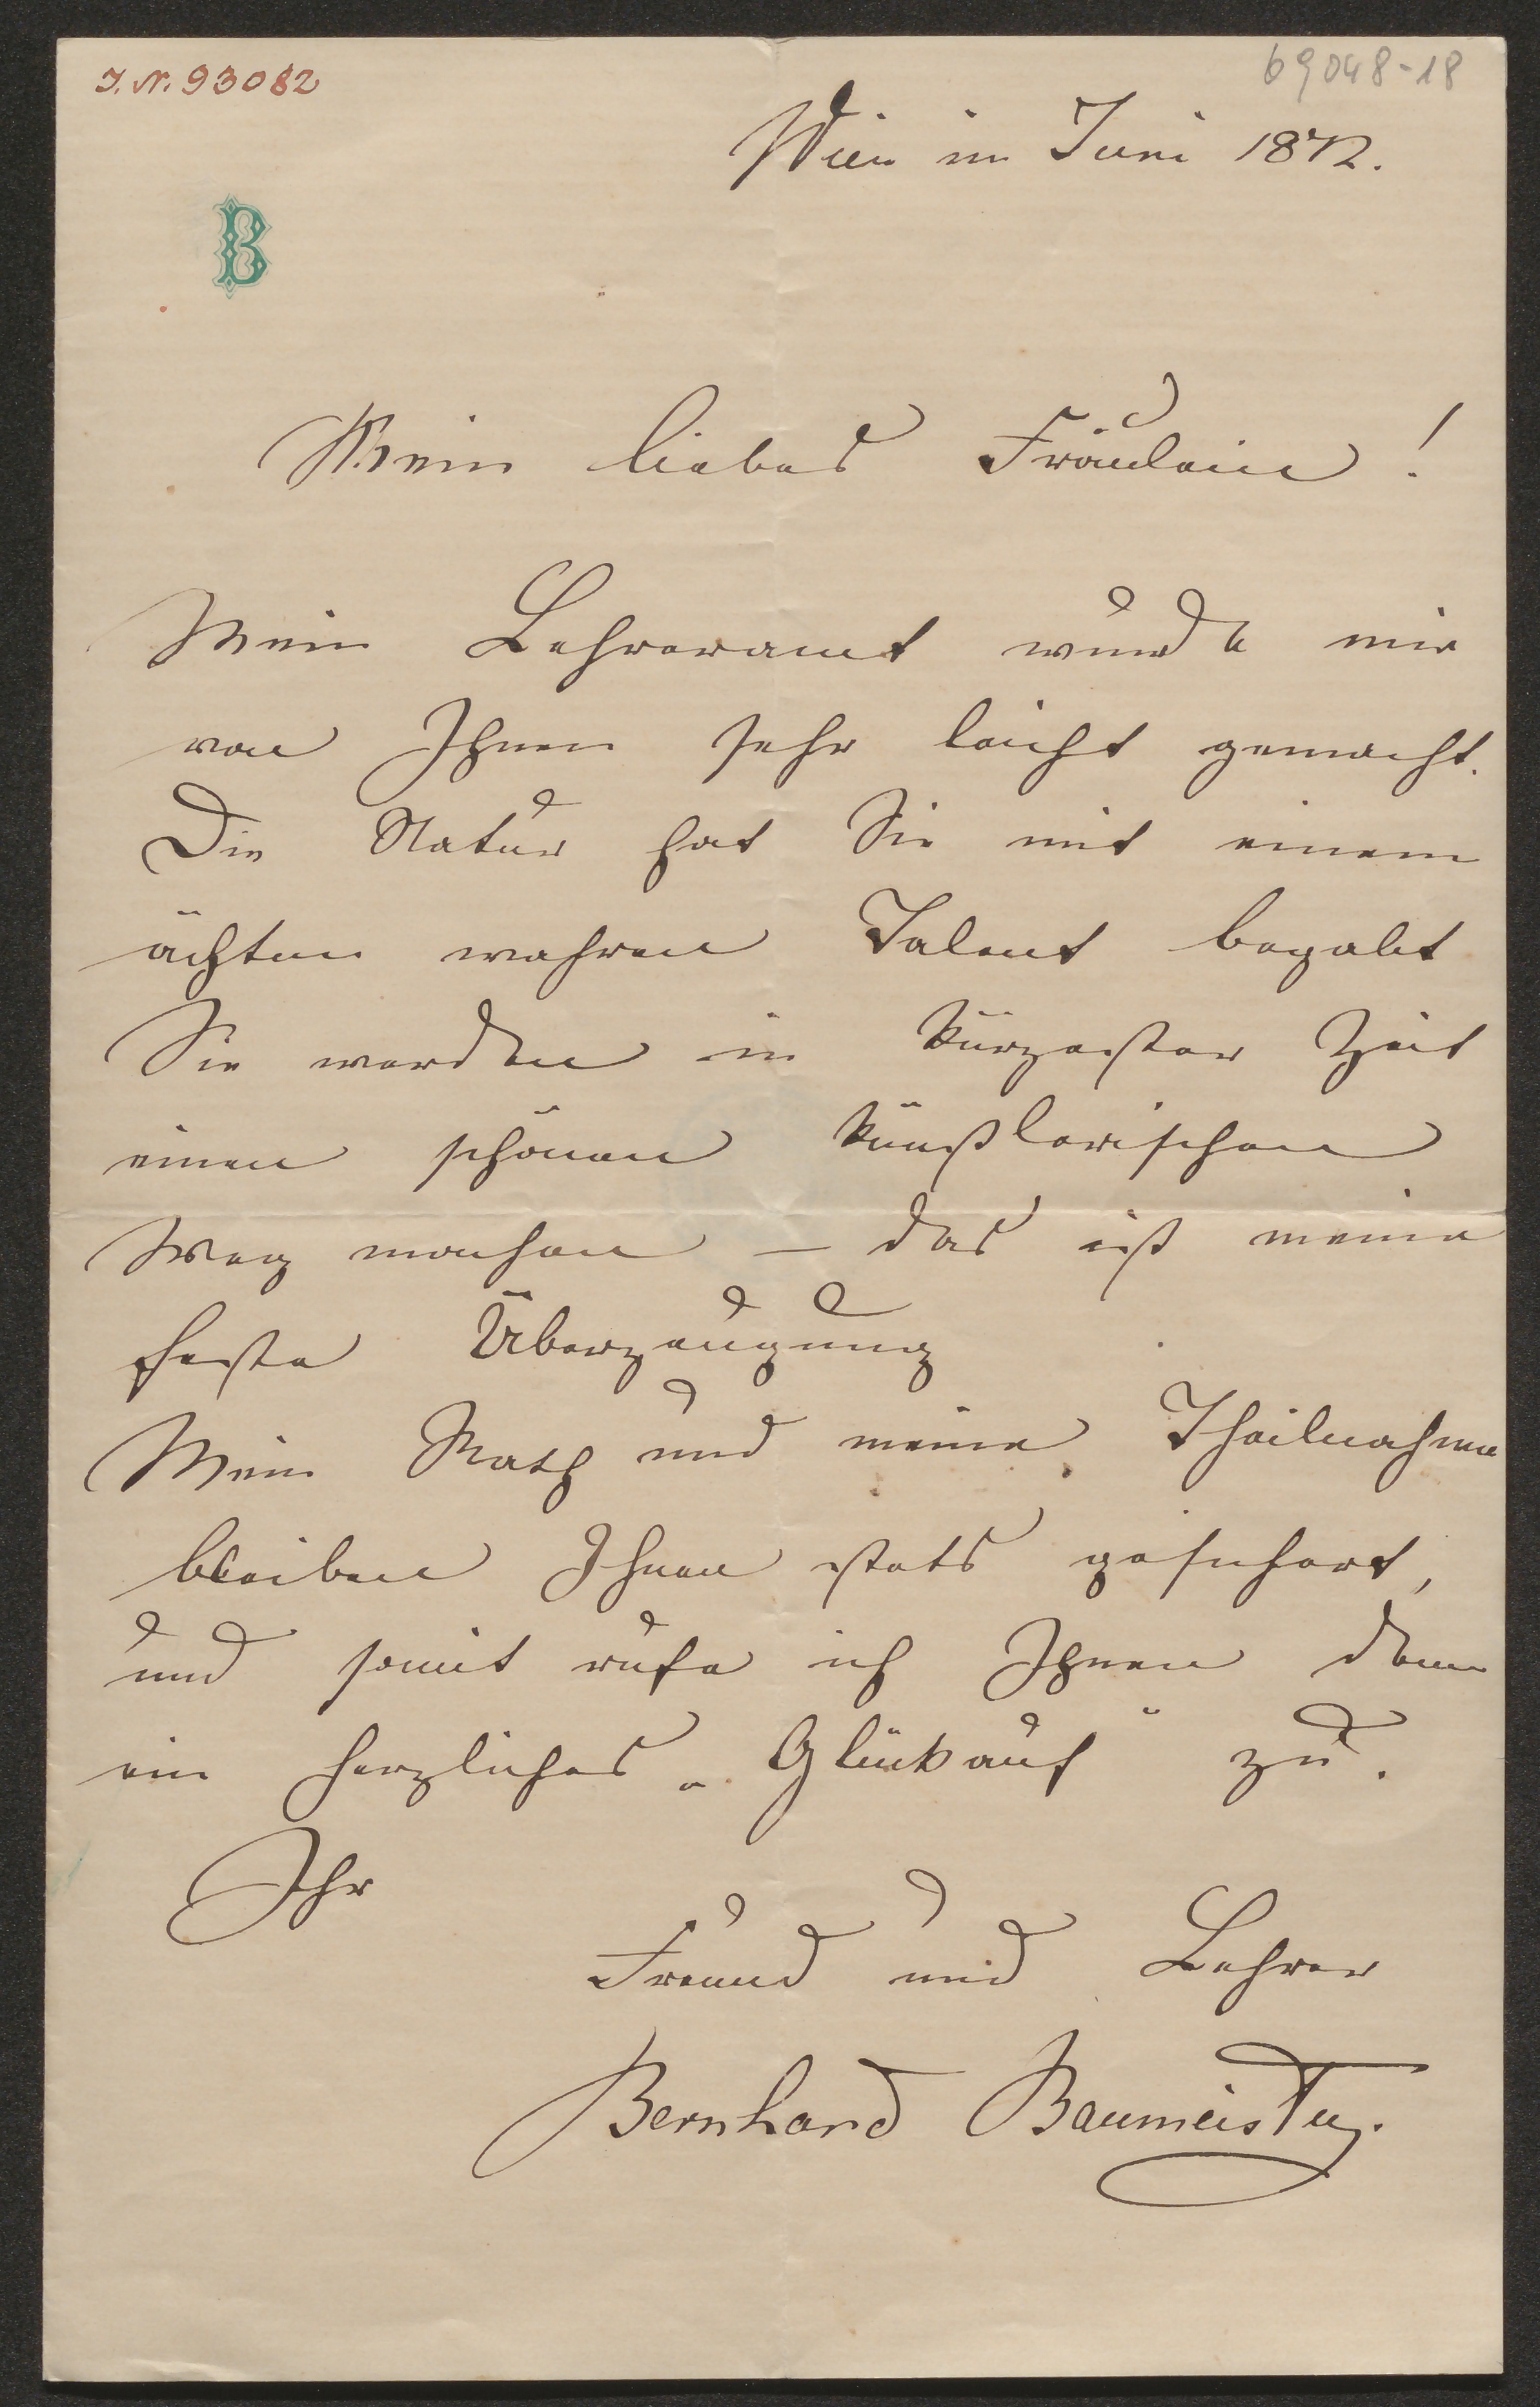 I. N. 93082
69048-18
Wien im Juni 1872.
B
Mein liebes Fräulein!
Mein Lehreramt wurde mir
von Ihnen sehr leicht gemacht.
Die Natur hat Sie mit einem
ächten wahren Talent begabt
Sie werden in kürzester Zeit
einen schönen künstlerischen
Weg machen – das ist meine
feste Überzeugung
Mein Rath und meine Theilnahme
bleiben Ihnen stets gesichert,
und somit rufe ich Ihnen denn
ein herzliches „Glückauf“ zu.
Ihr
Freund und Lehrer
Bernhard Baumeister.